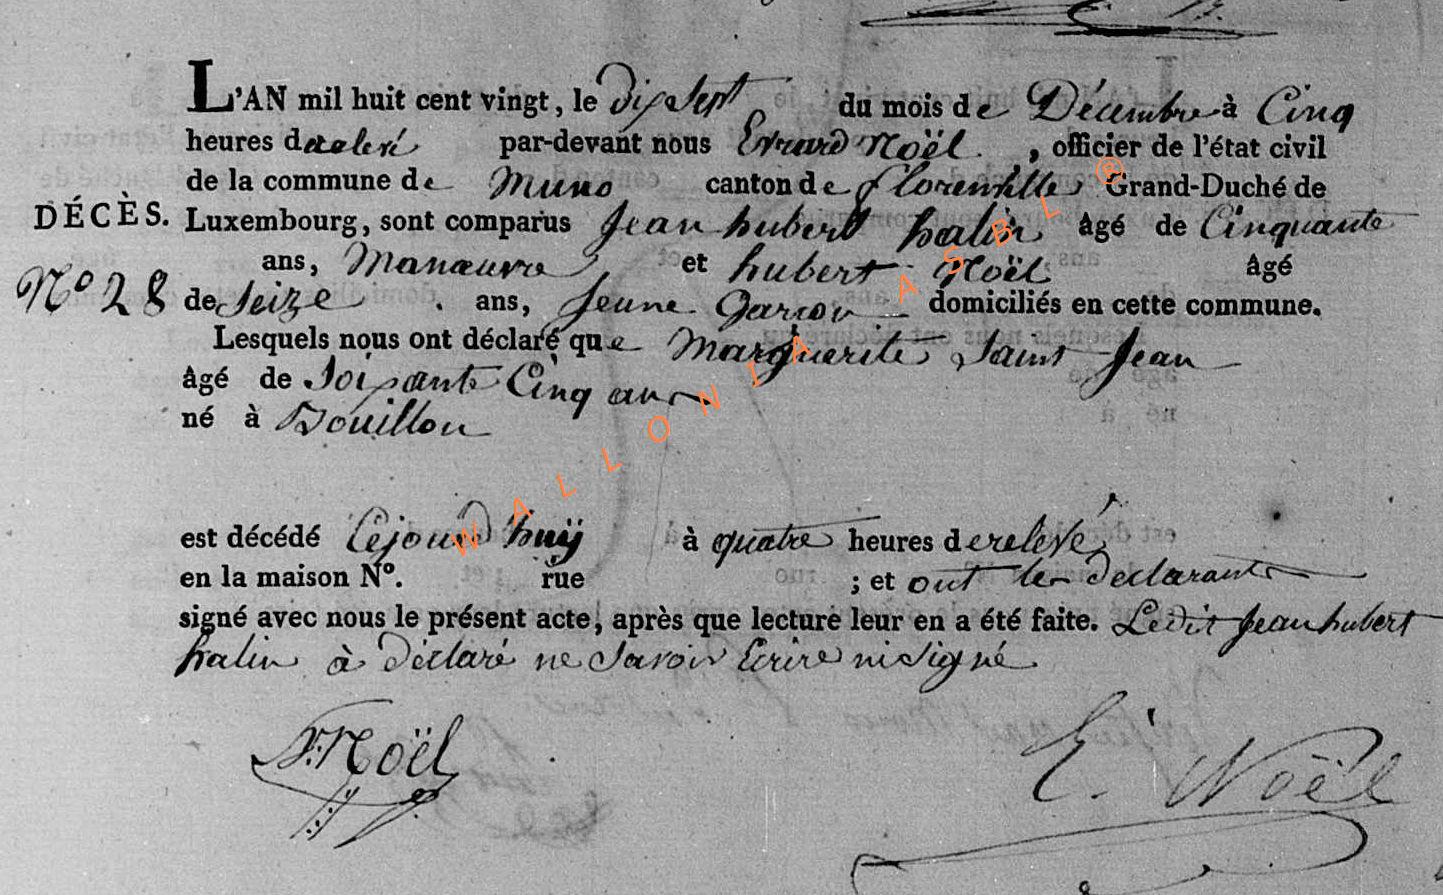 L'AN mil huit cent vingt, le dix sept du mois de Décembre à Cinq
heures de relevé par-devant nous Evrard Noël, officier de l'état civil
de la commune de Muno canton de florenville Grand-Duché de
DÉCÈS. Luxembourg, sont comparus Jean hubert halin âgé de Cinquante
ans, Manœuvre et hubert Noël âgé
N° 28 de Seize ans, Jeune Garcon domiciliés en cette commune.
Lesquels nous ont déclaré que Marguerite Saint Jean
âgé de Soixante Cinq ans
né à Bouillon
est décédé Cejourd'huÿ à quatre heures de relevé
en la maison N°. rue ; et ont les declarants
signé avec nous le présent acte, après que lecture leur en a été faite. Ledit Jean hubert
halin à déclaré ne Savoir Ecrire ni Signé
Noël
E. Noël
WALLONIA ASBL ®